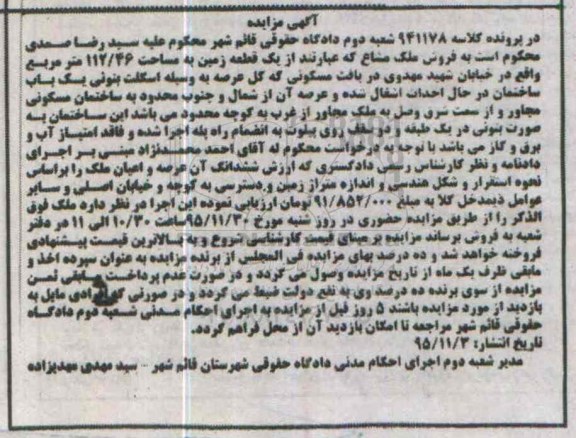 آگهی مزایده
در پرونده کلاسه ۹۴۱۱۷۸ شعبه دوم دادگاه حقوقی قائم شهر محکوم علیه سید رضا صمدی
محکوم است به فروش ملک مشاع که عبارتند از یک قطعه زمین به مساحت ۱۱۲/۴۶ متر مربع
واقع در خیابان شهید مهدوی در بافت مسکونی که کل عرصه به وسیله اسکلت بتونی یک باب
ساختمان در حال احداث اشغال شده و عرصه آن از شمال و جنوب محدود به ساختمان مسکونی
مجاور و از سمت شرق وصل به ملک مجاور از غرب به کوچه محدود می باشد این ساختمان به
صورت بتونی در یک طبقه و دو سقف روی پیلوت به انضمام راه پله اجرا شده و فاقد امتیاز آب و
برق و گاز می باشد با توجه به درخواست محکوم له آقای احمد محمدنژاد مبنی بر اجرای
دادنامه و نظر کارشناس رسمی دادگستری که ارزش ششدانگ آن عرصه و اعیان ملک را براساس
نحوه استقرار و شکل هندسی و اندازه متراژ زمین و دسترسی به کوچه و خیابان اصلی و سایر
عوامل ذیمدخل کلا به مبلغ ۹۱/۸۵۲/۰۰۰ تومان ارزیابی نموده این اجرا در نظر دارد ملک فوق
الذکر را از طریق مزایده حضوری در روز شنبه مورخ ۹۵/۱۱/۳۰ ساعت ۱۰/۳۰ الی ۱۱ در دفتر
شعبه به فروش برساند مزایده بر مبنای قیمت کارشناسی شروع و به بالاترین قیمت پیشنهادی
فروخته خواهد شد و ده درصد بهای مزایده فی المجلس از برنده مزایده به عنوان سپرده اخذ و
مابقی ظرف یک ماه از تاریخ مزایده وصول می گردد و در صورت عدم پرداخت مابقی ثمن
مزایده از سوی برنده ده درصد وی به نفع دولت ضبط می گردد و در صورتی که مایل به
بازدید از مورد مزایده باشند ۵ روز قبل از مزایده به اجرای احکام مدنی شعبه دوم دادگاه
حقوقی قائم شهر مراجعه تا امکان بازدید آن از محل فراهم گردد.
تاریخ انتشار: ۹۵/۱۱/۳
مدیر شعبه دوم اجرای احکام مدنی دادگاه حقوقی شهرستان قائم شهر - سید مهدی مهدیزاده